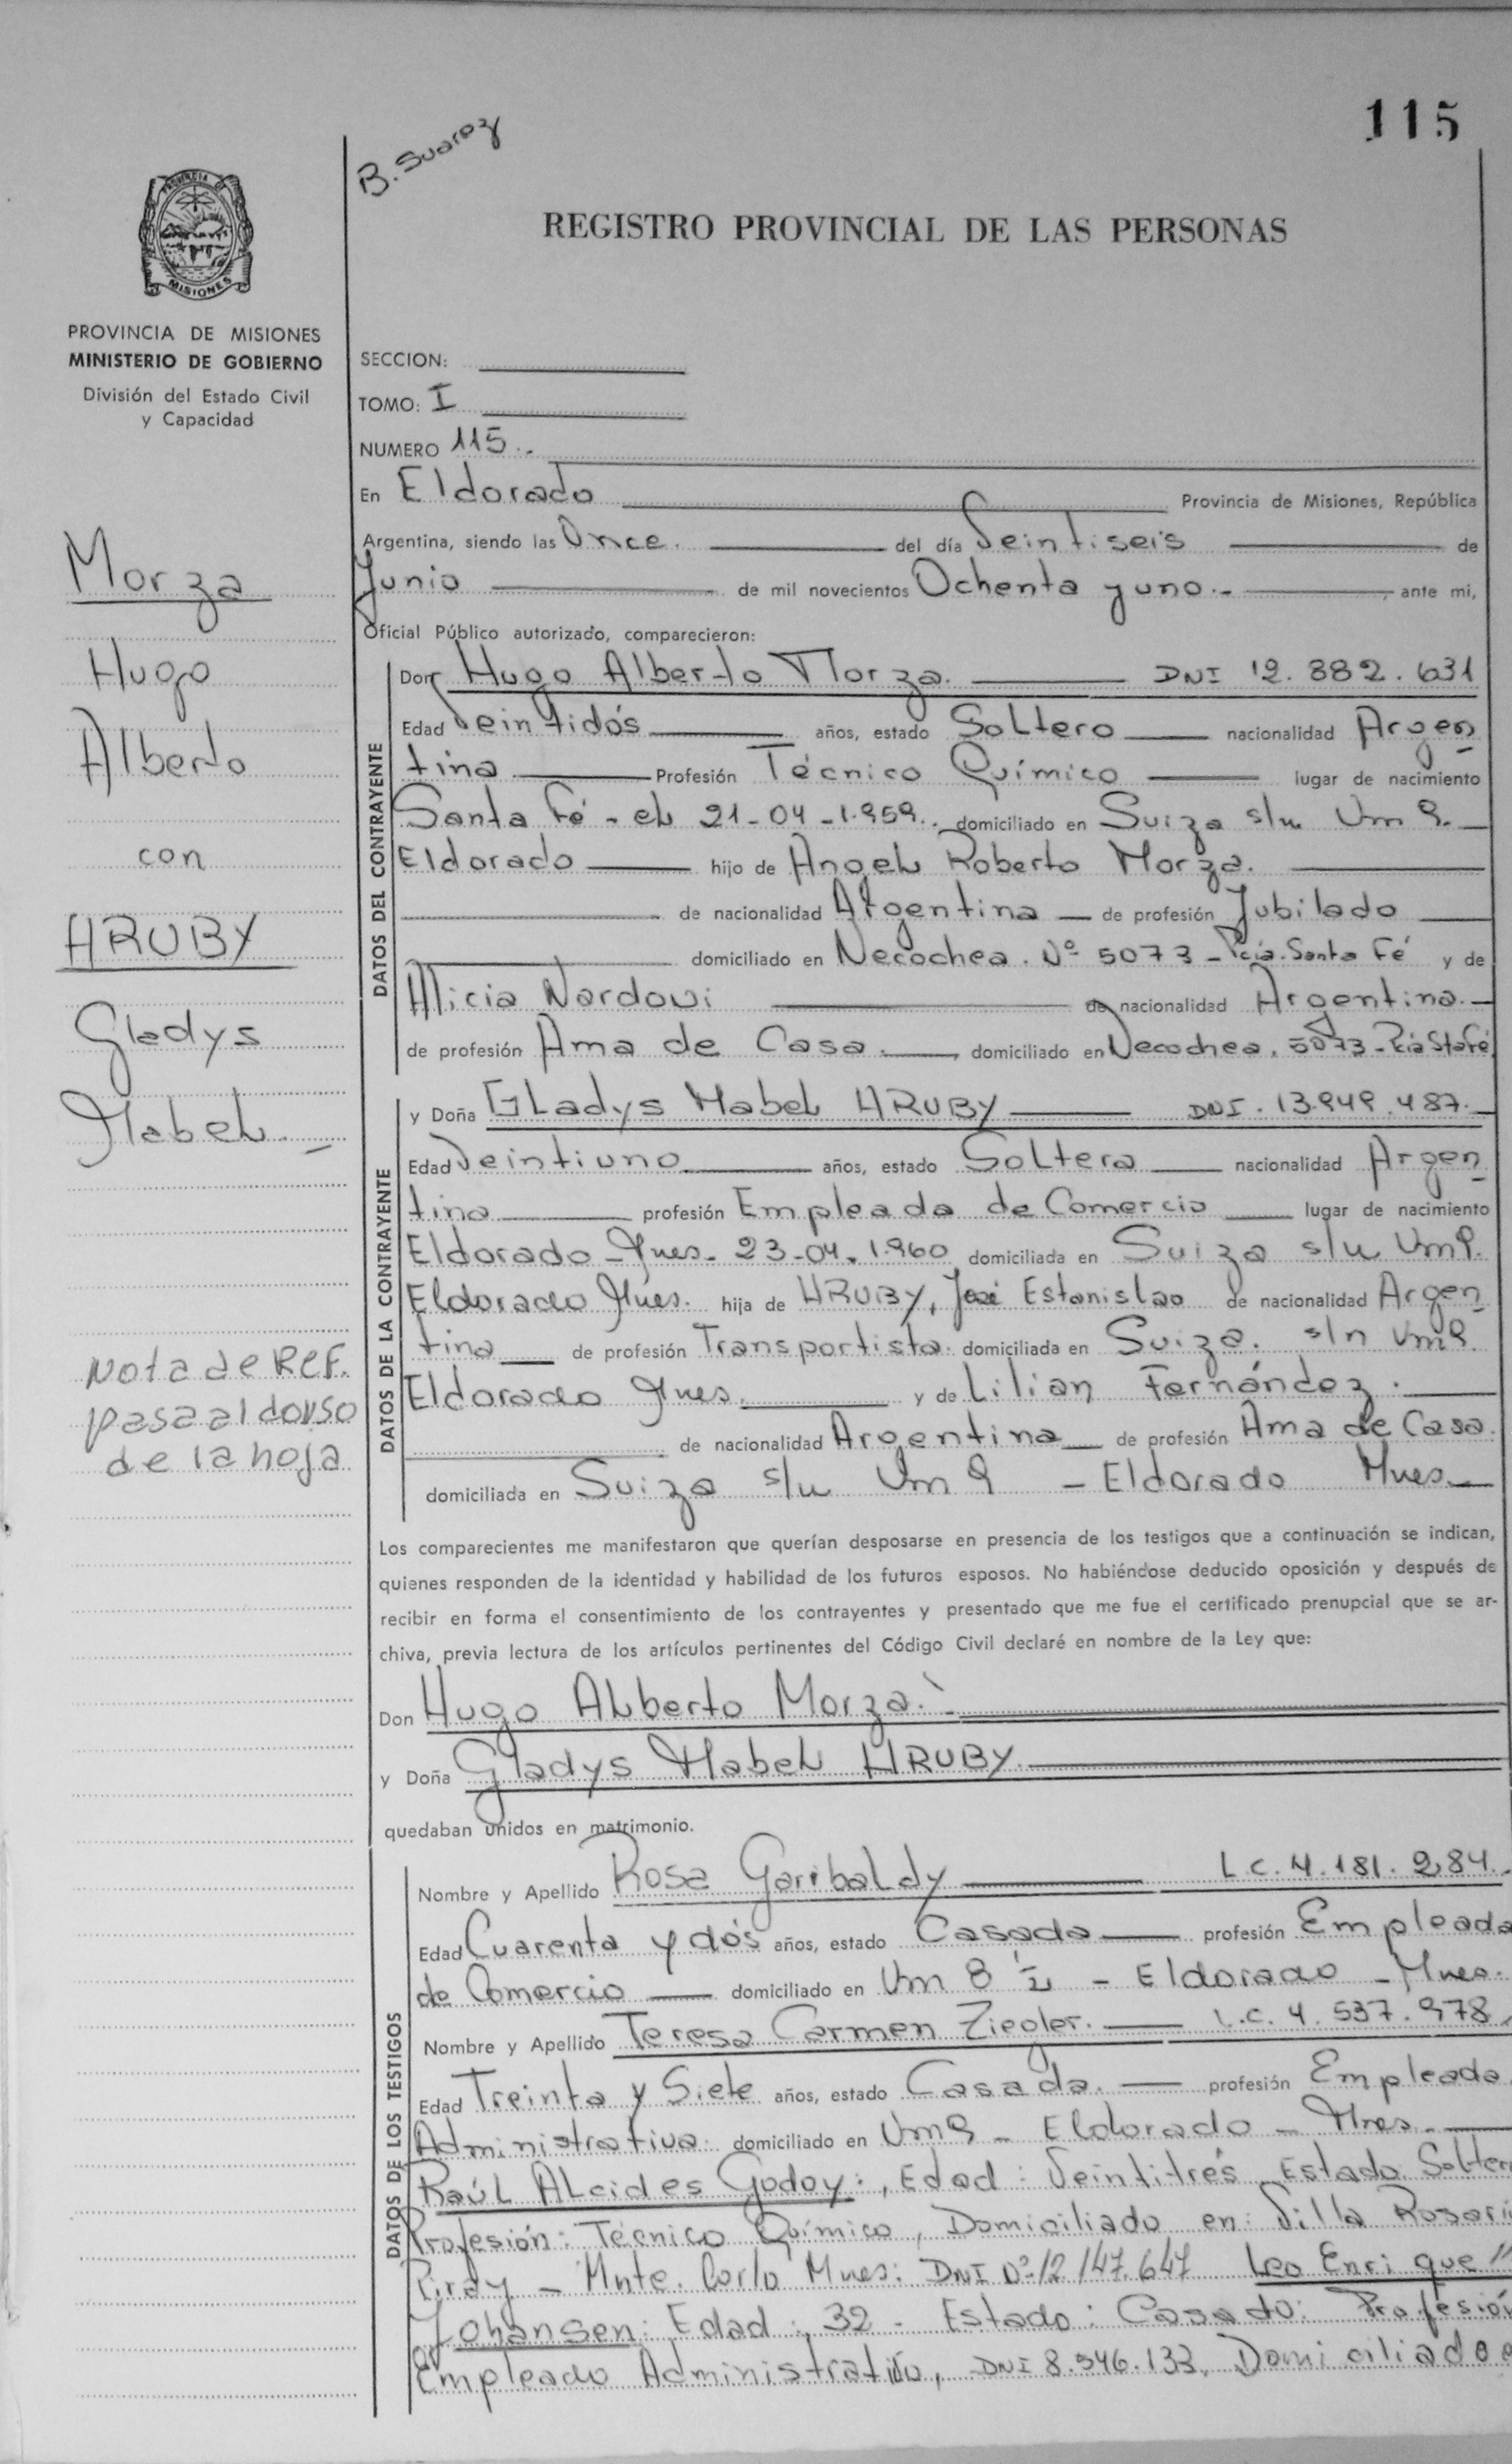 115
B. Suarez
REGISTRO PROVINCIAL DE LAS PERSONAS
PROVINCIA DE
MISIONES
PROVINCIA DE MISIONES
MINISTERIO DE GOBIERNO
División del Estado Civil
y Capacidad
Morza
Hugo
Alberto
con
HRUBY
Gladys
Mabel
Nota de Ref.
pasa al dorso
de la hoja
SECCION:
TOMO: I
NUMERO 115
En Eldorado Provincia de Misiones, República
Argentina, siendo las Once. del día Veintiseis de
Junio de mil novecientos Ochenta y uno.- , ante mi,
Oficial Público autorizado, comparecieron:
DATOS DEL CONTRAYENTE
Don Hugo Alberto Morza. DNI 12.882.631
Edad Veintidós años, estado Soltero nacionalidad Argen
tina Profesión Técnico Químico lugar de nacimiento
Santa Fé - el 21-04-1.959. domiciliado en Suiza s/n Km 9.
Eldorado hijo de Angel Roberto Morza.
de nacionalidad Argentina de profesión Jubilado
domiciliado en Necochea. Nº 5073 - Pcia. Santa Fé y de
Alicia de nacionalidad Argentina.
de profesión Ama de Casa , domiciliado en Necochea. 5073 - Pcia Sta Fé
DATOS DE LA CONTRAYENTE
y Doña Gladys Mabel HRUBY DNI. 13.949.487.
Edad Veintiuno años, estado Soltera nacionalidad Argen
tina profesión Empleada de Comercio lugar de nacimiento
Eldorado - Mnes. 23-04-1.960 domiciliada en Suiza s/n Km 9.
Eldorado Mnes. hija de HRUBY, José Estanislao de nacionalidad Argen
tina de profesión Transportista. domiciliada en Suiza. s/n Km 9.
Eldorado Mnes. y de Lilian Fernández.
de nacionalidad Argentina de profesión Ama de Casa.
domiciliada en Suiza s/n Km 9 - Eldorado Mnes
Los comparecientes me manifestaron que querían desposarse en presencia de los testigos que a continuación se indican,
quienes responden de la identidad y habilidad de los futuros esposos. No habiéndose deducido oposición y después de
recibir en forma el consentimiento de los contrayentes y presentado que me fue el certificado prenupcial que se ar-
chiva, previa lectura de los artículos pertinentes del Código Civil declaré en nombre de la Ley que:
Don Hugo Alberto Morza.
y Doña Gladys Mabel HRUBY.
quedaban unidos en matrimonio.
DATOS DE LOS TESTIGOS
Nombre y Apellido Rosa Garibaldy L.C. 4.181.284.
Edad Cuarenta y dós años, estado Casada profesión Empleada
de Comercio domiciliado en Km 8 ½ - Eldorado - Mnes.
Nombre y Apellido Teresa Carmen Ziegler. L.C. 4.537.978
Edad Treinta y Siete años, estado Casada. profesión Empleada
Administrativa. domiciliado en Km 9 - Eldorado - Mnes.
Raúl Alcides Godoy: , Edad: Veintitrés Estado Solter
Profesión: Técnico Químico, Domiciliado en: Villa Rosari
Piray - Mnte. Carlo Mnes: DNI Nº 12.147.647 Leo Enrique
Johansen: Edad: 32 - Estado: Casado: Profesión
Empleado Administrativo, DNI 8.546.133, Domiciliado e